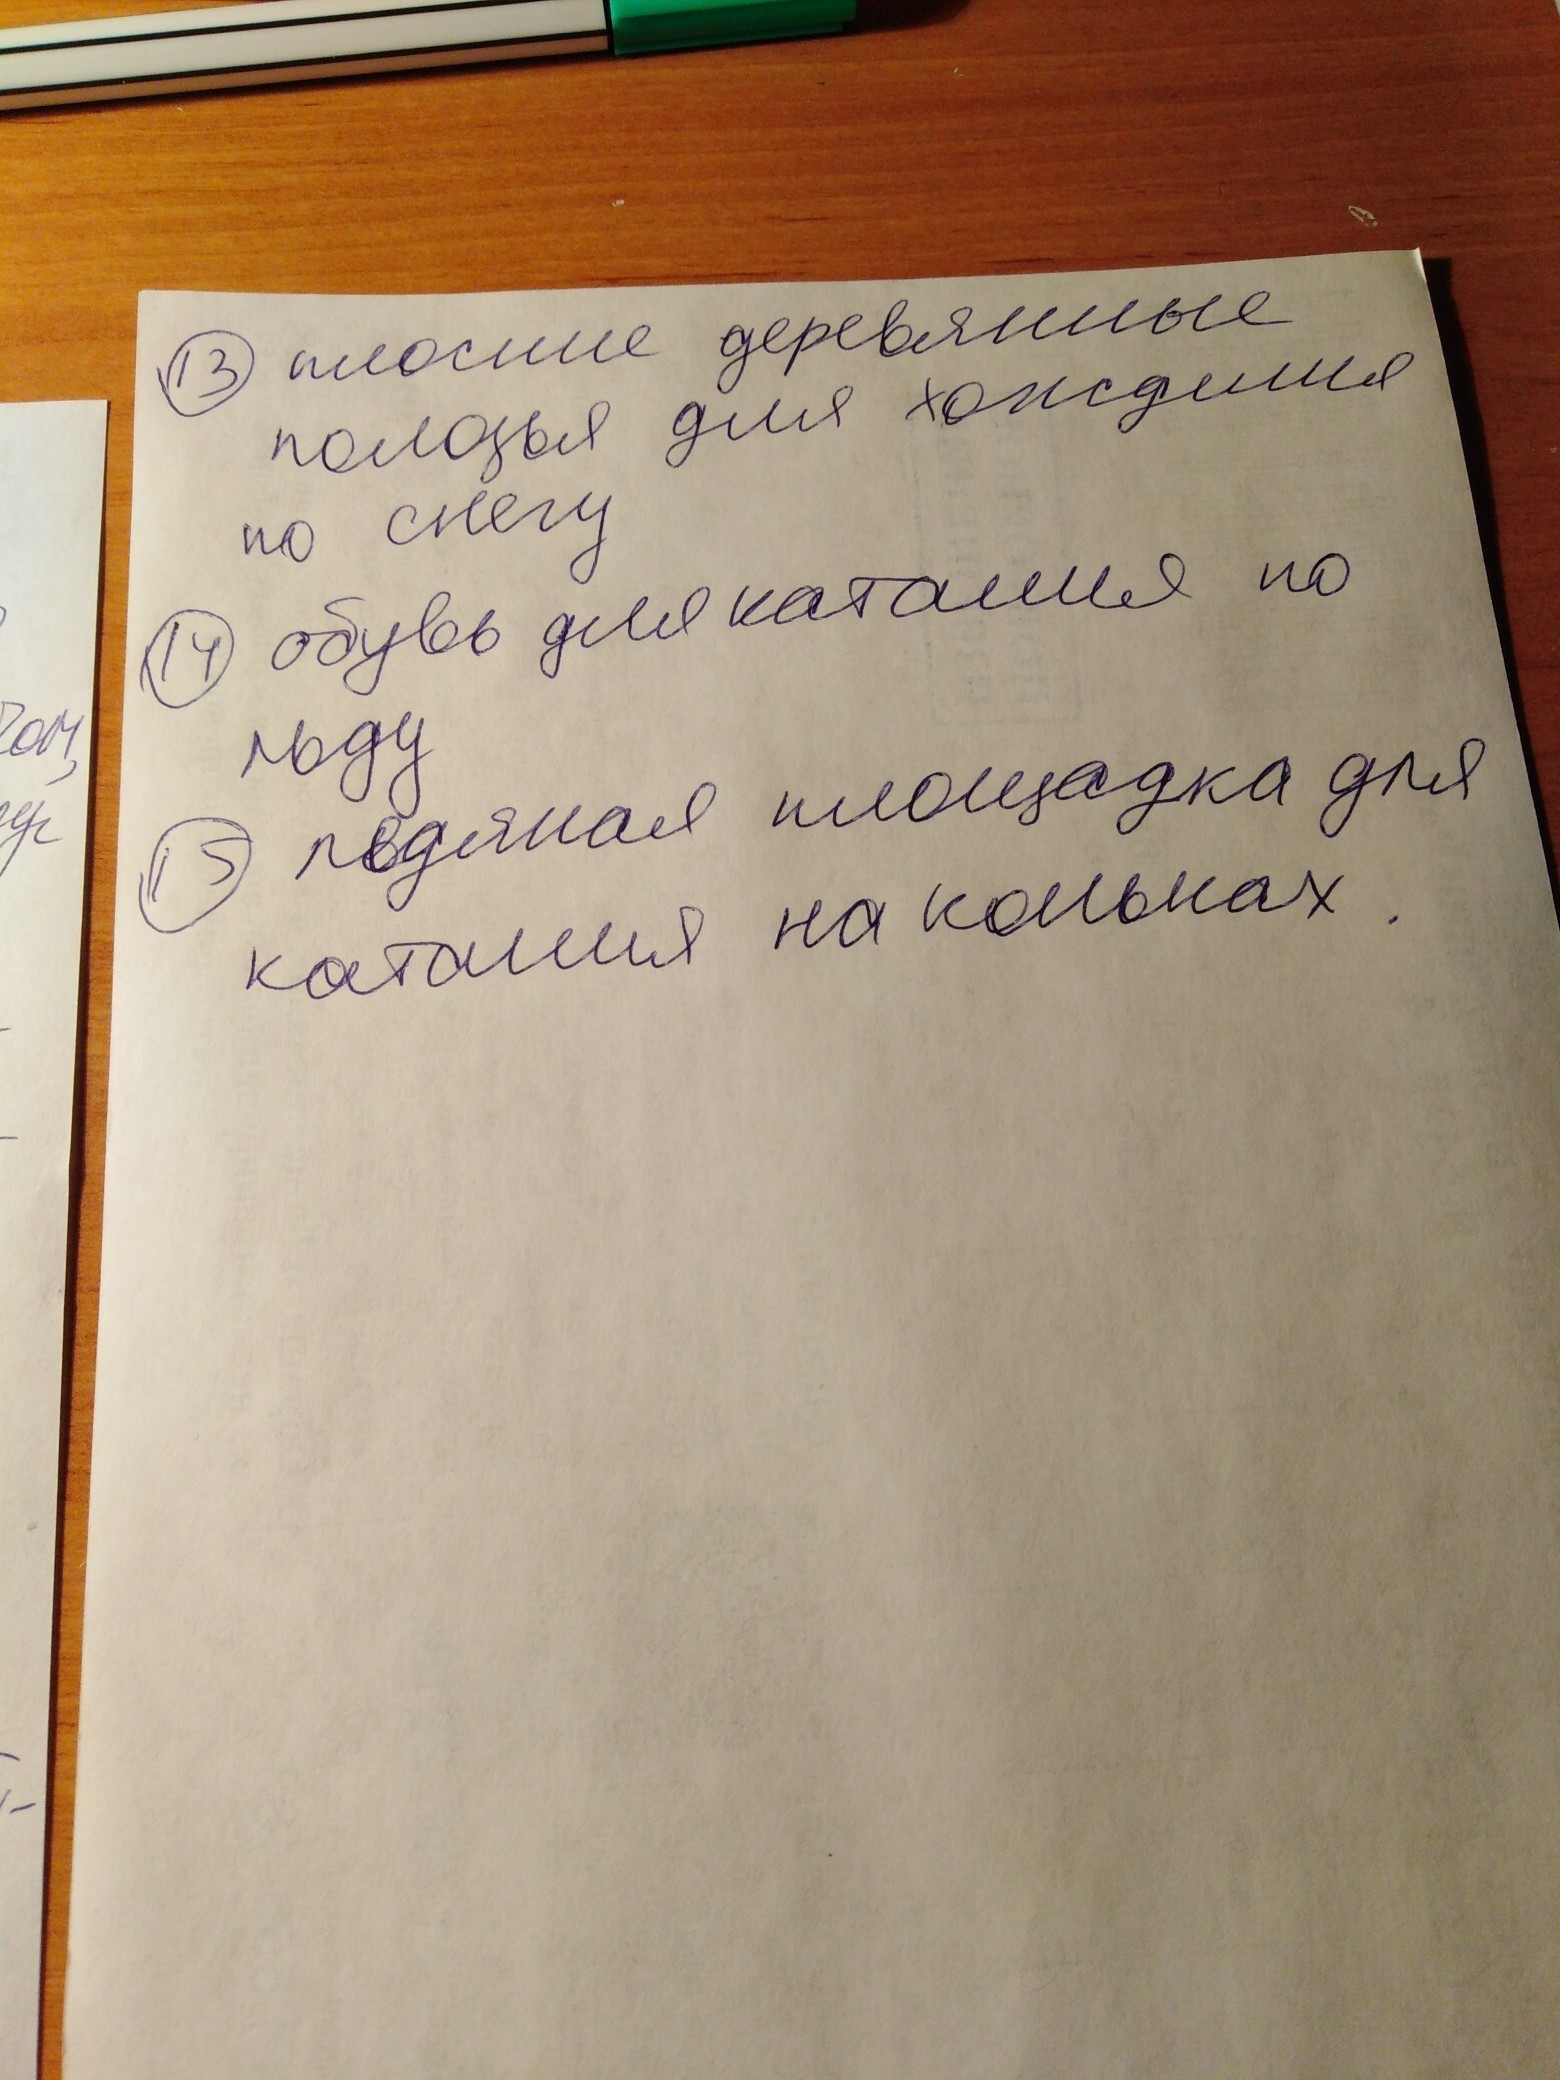 13 плоские деревянные
полозья для хождения
по снегу
14 обувь для катания по
льду
15 ледяная площадка для
катания на коньках.